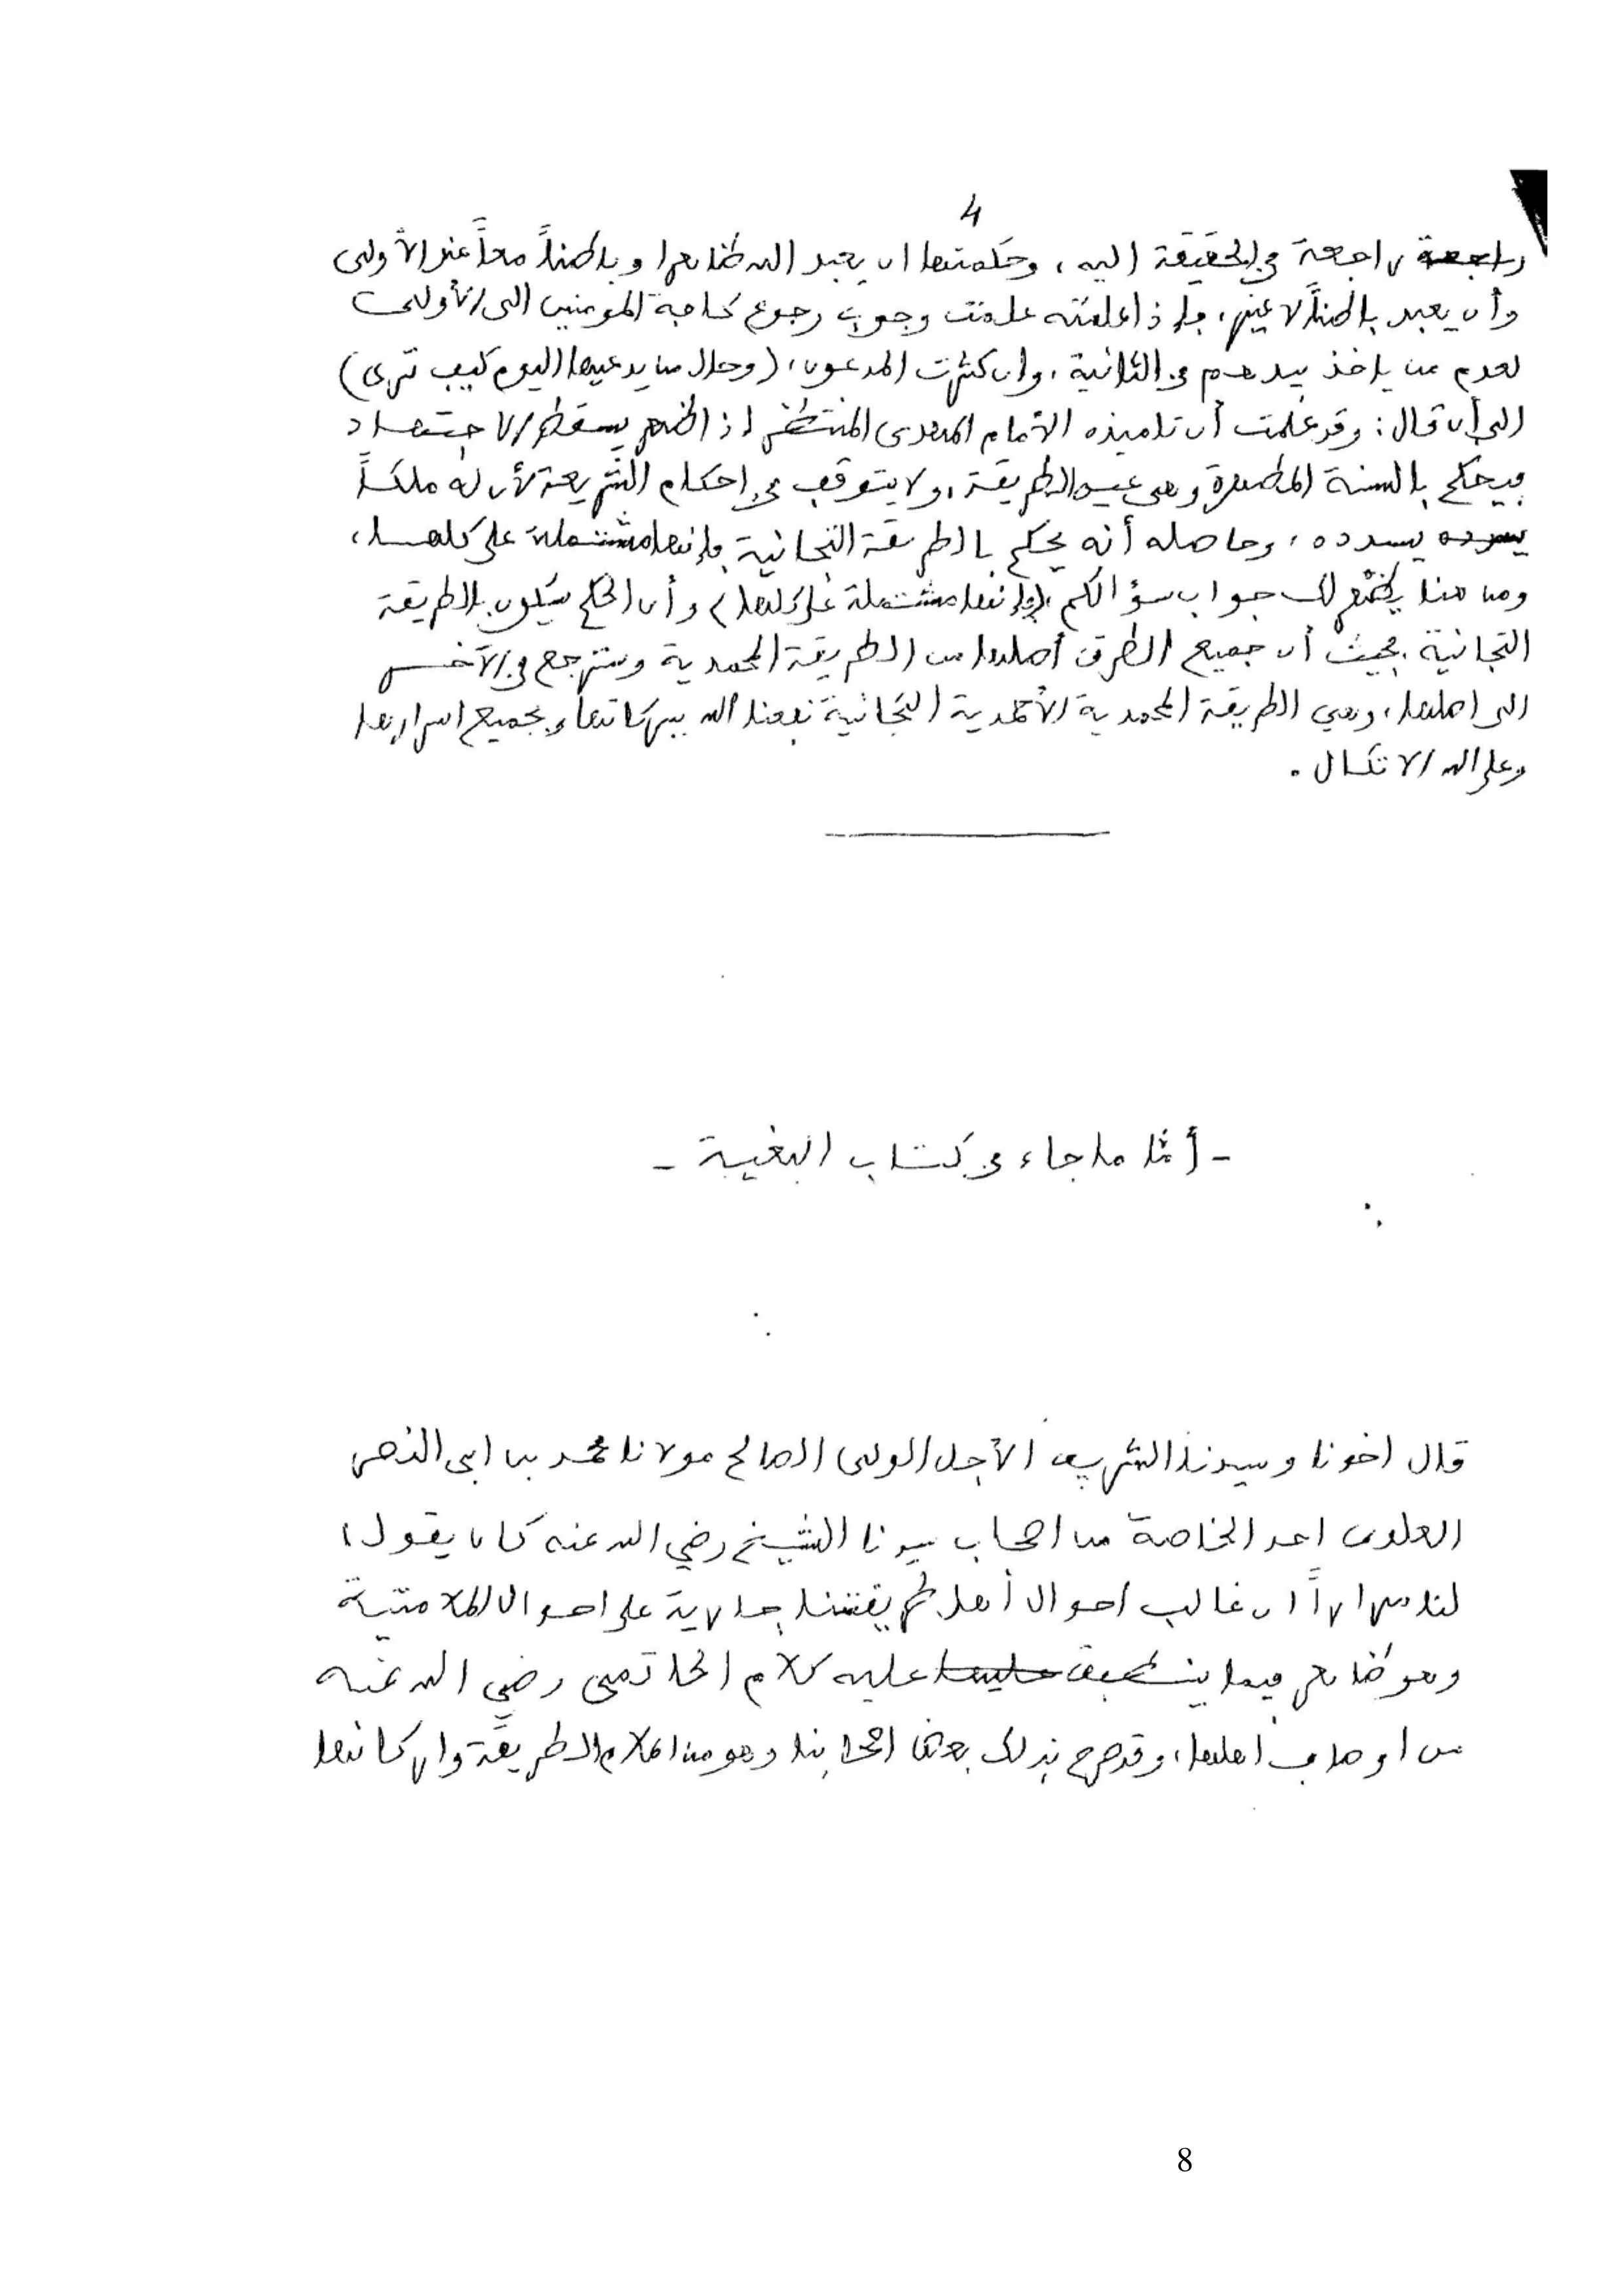 4
راجعة راجعة في الحقيقة اليه، وحكمتها ان يعبد الله ظاهرا و باطناً معاً عند الأولى
وأن يعبد باطناً لا غير، فإذا علمته علمت وجوب رجوع كافة المومنين الى الأولى
لعدم من ياخذ بيدهم في الثانية، وان كثرت المدعون، (وحال من يدعيها اليوم كيف ترى)
الى أن قال: وقد علمت أن تلميذه الامام المهدى المنتظر اذا ظهر يسقط الاجتهاد
فيحكم بالسنة المطهرة وهي عين الطريقة، ولا يتوقف في احكام الشريعة لأن له ملكاً
يسدده يسدده، وحاصله أنه يحكم بالطريقة التجانية فإنها مشتملة على كلها،
ومن هنا يظهر لك جواب سؤالكم، (فإنها مشتملة على كلها) وأن الحكم سيكون بالطريقة
التجانية، بحيث أن جميع الطرق أصلها من الطريقة المحمدية وسترجع في الآخر
الى اصلها، وهي الطريقة المحمدية الأحمدية التجانية نفعنا الله ببركاتها وبجميع اسرارها
وعلى الله الاتكال.
- أما ما جاء في كتاب البغية -
قال اخونا وسيدنا الشريف الأجل الولى الصالح مولانا محمد بن ابى النصر
العلوى احد الخاصة من اصحاب سيدنا الشيخ رضي الله عنه كان يقول،
لنا مراراً ان غالب احوال أهل طريقتنا جارية على احوال الملامتية
وهو ظاهر فيما ينطبق عليها عليه كلام الحاتمى رضي الله عنه
من اوصاف اهلها، وقد صرح بذلك بعض اصحابنا وهو من اعلام الطريقة واركانها
8